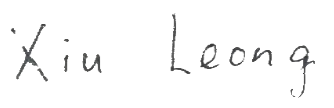 Xiu Leong